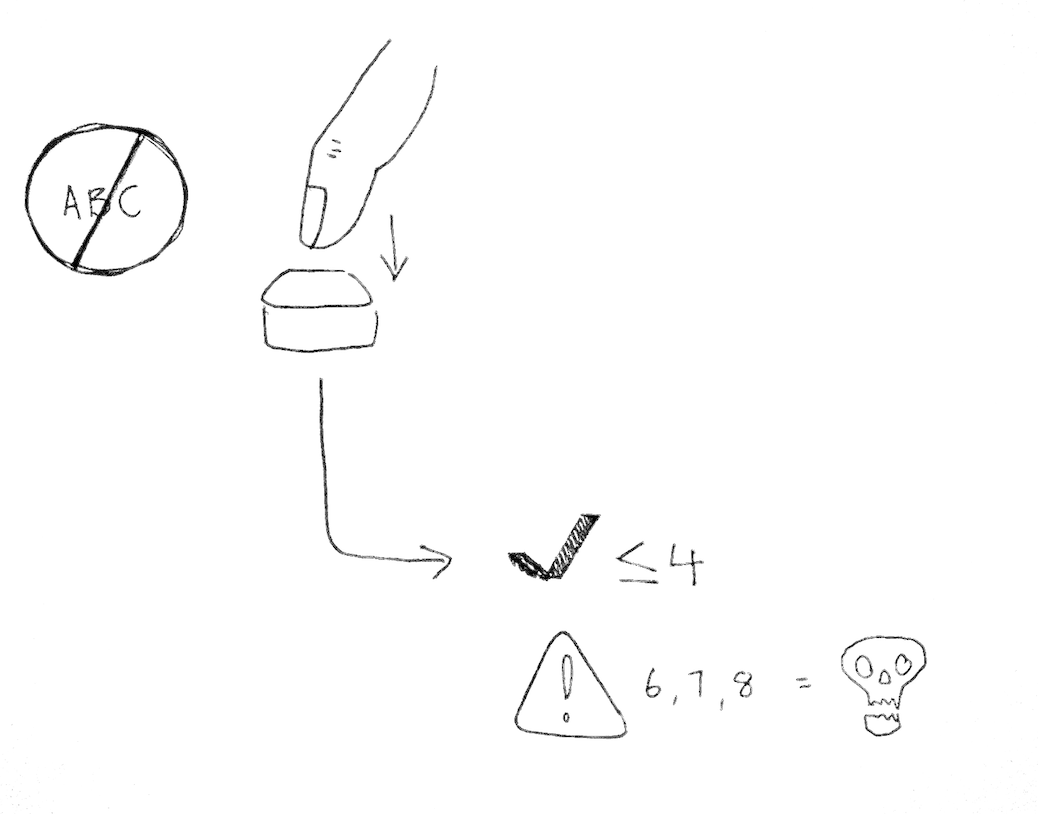 ABC
≤4
! 6,7,8 =